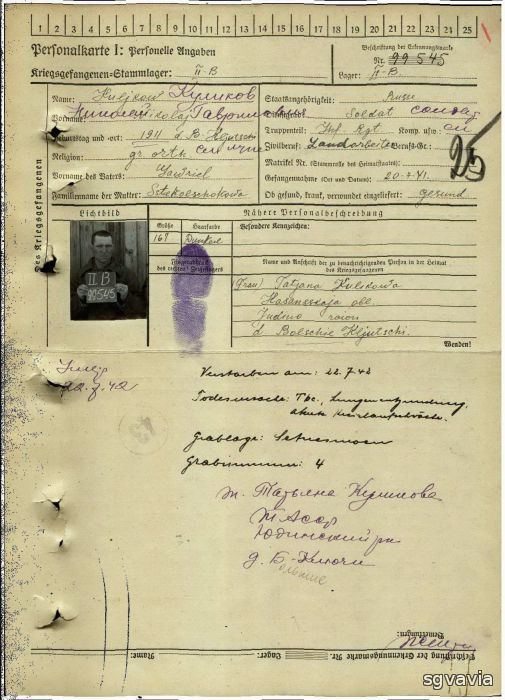 1 2 3 4 5 6 7 8 9 10 11 12 13 14 15 16 17 18 19 20 21 22 23 24 25
Personalkarte I: Personelle Angaben
Beschriftung der Erkennungsmarke
Nr. 99545
Kriegsgefangenen-Stammlager: II-B
Lager: II-B
Des Kriegsgefangenen
Name: Kuljkow Куликов
Staatsangehörigkeit: Russe
Vorname: Nikolaj Николай Гаврилович
Dienstgrad: Soldat солдат
Geburtstag und -ort: 1911 d. B. Kljutschi
Truppenteil: Inf. Rgt. Komp. usw.:
Religion: gr. orth
Zivilberuf: Landarbeiter Berufs-Gr.:
25
Vorname des Vaters: Gawriel
Matrikel Nr. (Stammrolle des Heimatstaates):
Gefangennahme (Ort und Datum): 20-7-41.
Familienname der Mutter:
Ob gesund, krank, verwundet eingeliefert: gesund
Lichtbild
Nähere Personalbeschreibung
Größe
Haarfarbe
Besondere Kennzeichen:
Dunkel
Fingerabdruck des rechten Zeigefingers
II B
99545
Name und Anschrift der zu benachrichtigenden Person in der Heimat des Kriegsgefangenen
(Frau) Tatjana Kulikowa
obl.
Judino raion
d Bolschie Kljutschi.
Wenden!
22.7.42
Verstorben am: 22.7.42
Todesursache: Tbc, Lungenentzündung,
akute Kreislaufschwäche.
Grablage:
Grabnummer: 4
ж. Татьяна Куликова
Юдинский рн
д. Б-Ключи
ольшие
Bemerkungen:
Beschriftung der Erkennungsmarke Nr. Lager: Name:
sgvavia